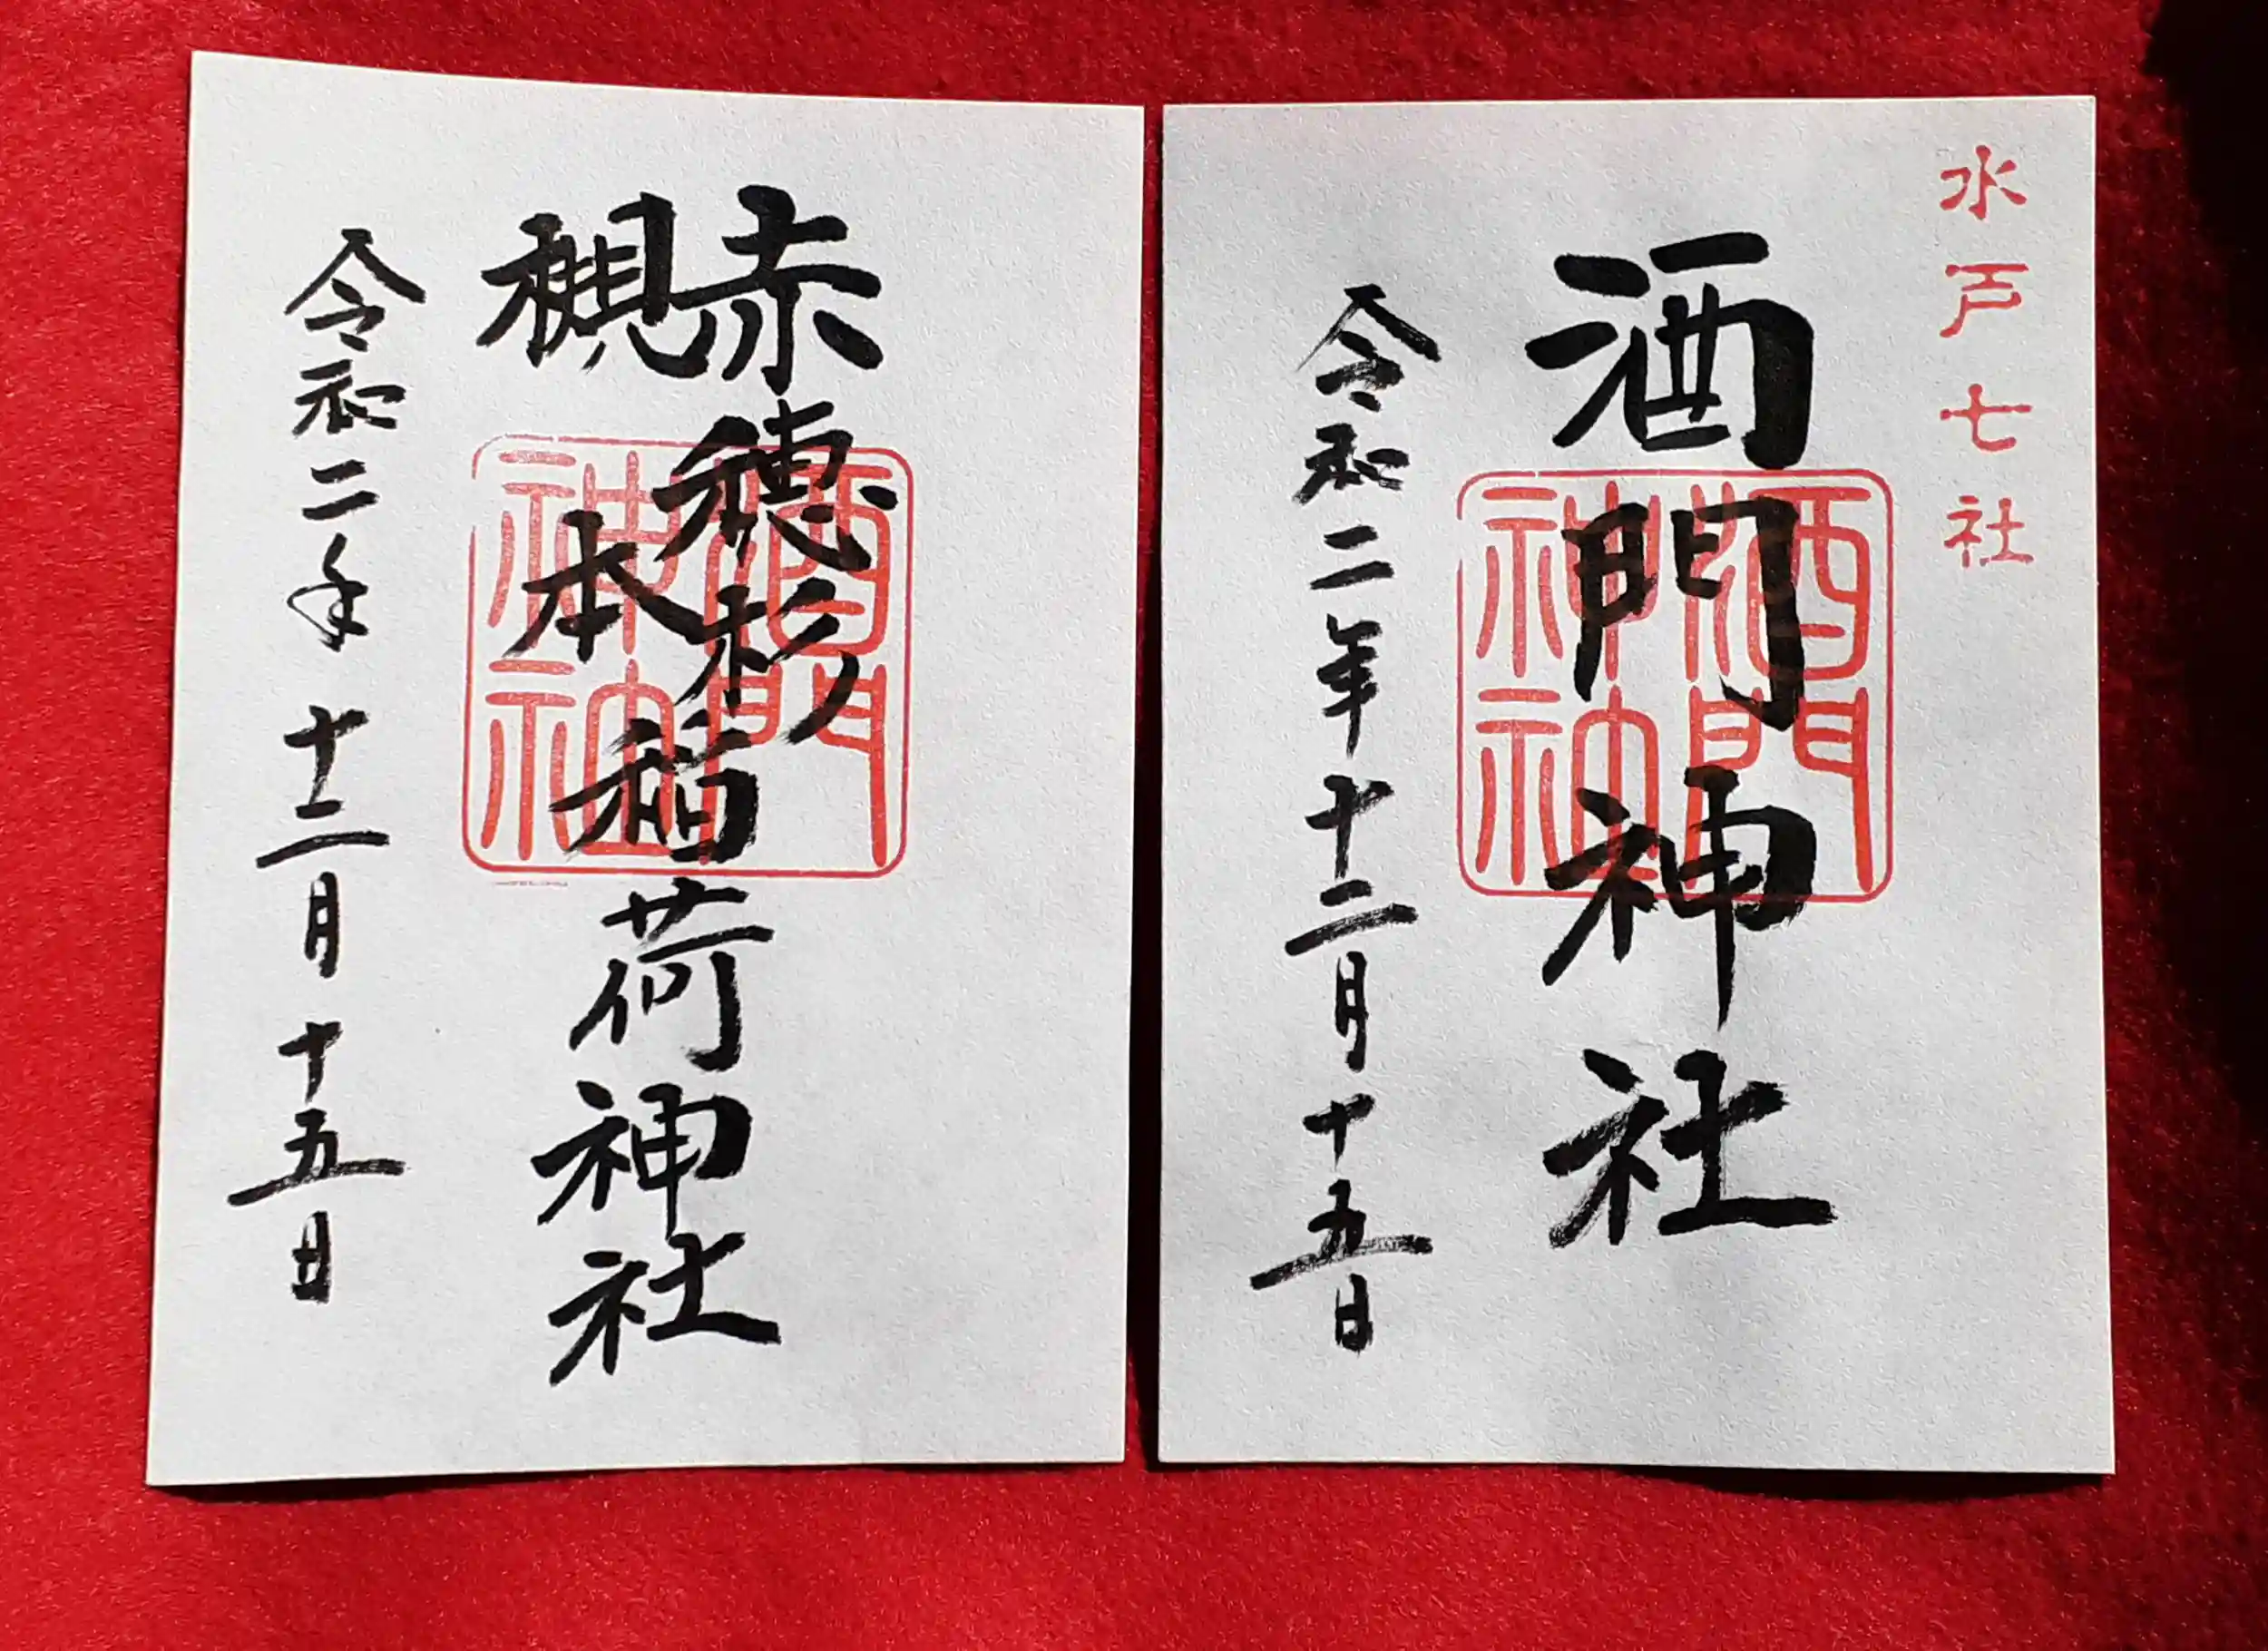 水戸七社
酒門神社
酒門
神社
令和二年十二月十五日
赤穂杉
槻本
稲荷神社
酒門
神社
令和二年十二月十五日